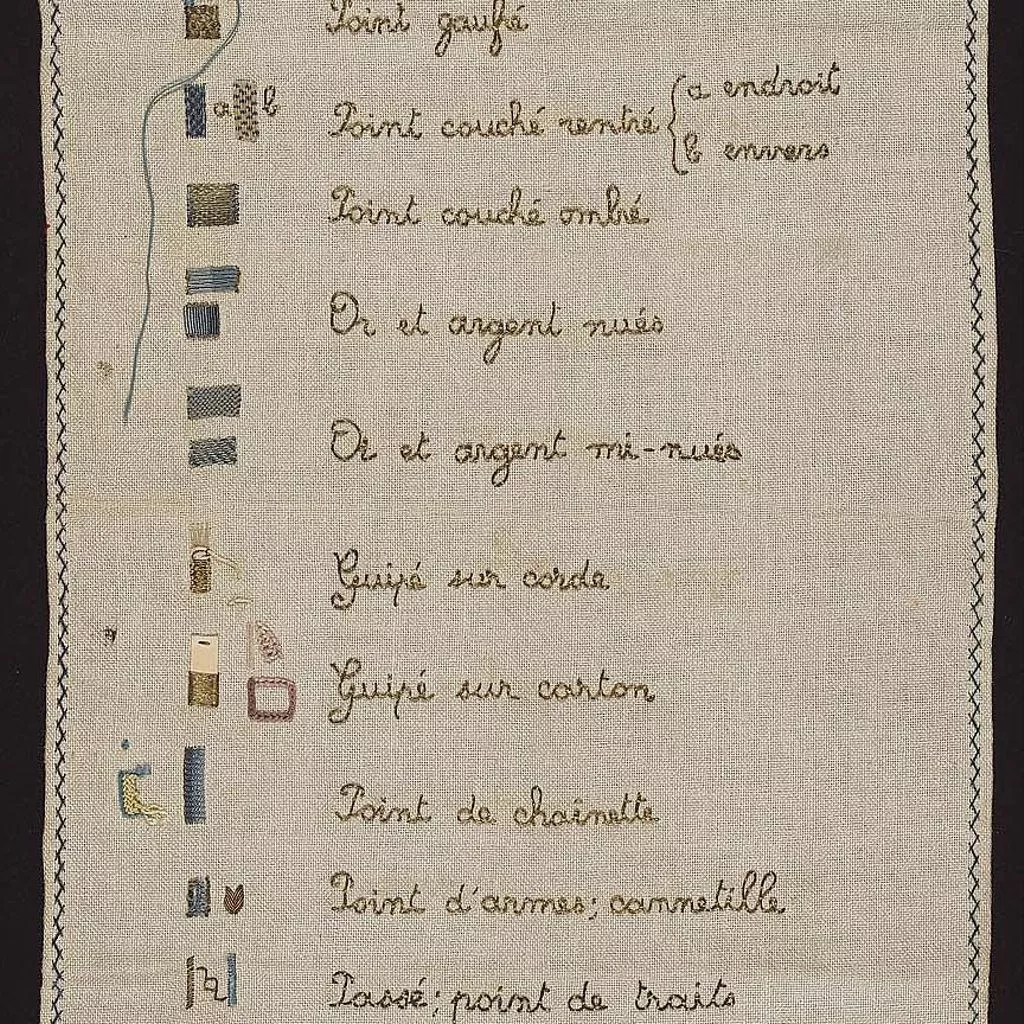 Point gaufré
a b Point couché rentré { a endroit
b envers
Point couché ombré
Or et argent nués
Or et argent mi-nués
Guipé sur corde
Guipé sur carton
Point de chaînette
Point d'armes; cannetille
Passé; point de traits